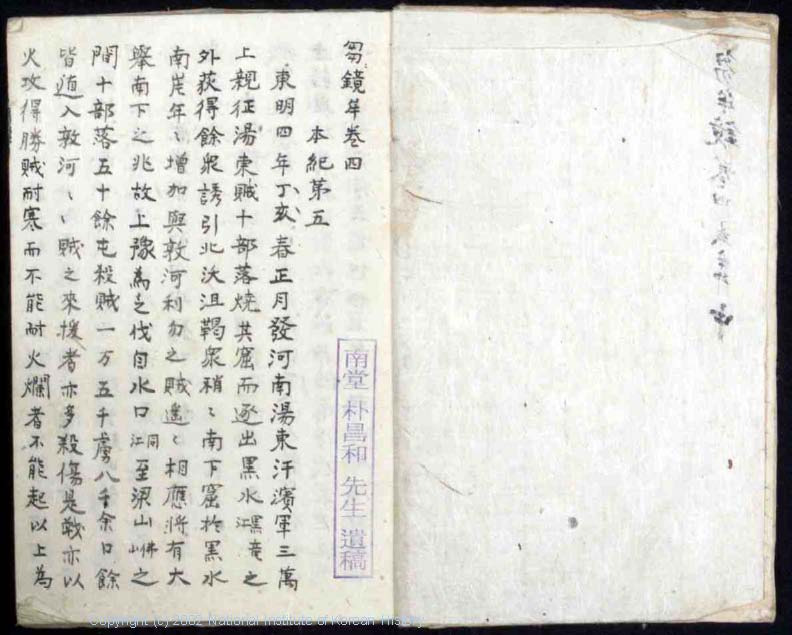 芻鏡牟卷四
本紀第五
東明四年丁亥春正月發河南湯東汗濱軍三萬
上親征湯東賊十部落燒其窟而逐出黑水黑竜江之
外荻得餘衆誘引北沃沮鞨衆稍〻南下窟於黑水
南岸年〻增加與敦河利勿之賊遙〻相應將有大
擧南下之兆故上豫為之伐自水口同江至梁山佛山之
間十部落五十餘屯殺賊一万五千虜八千余口餘
皆遁入敦河〻賊之來援者亦多殺傷是戰亦以
火攻得勝賊耐寒而不能耐火爛者不能起以上為
南堂 朴昌和 先生 遺稿
Copyright (c) 2002 National Institute of Korean History